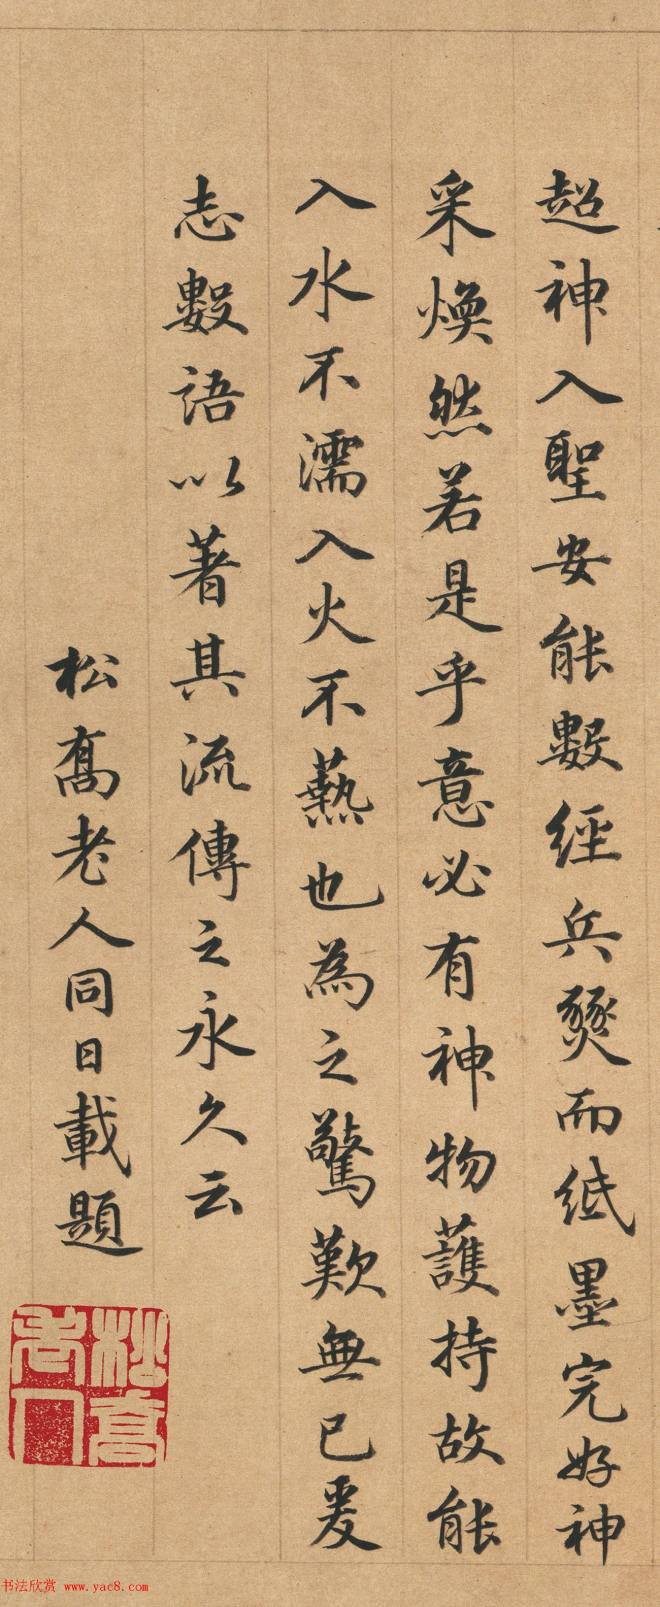 超神入聖安能數經兵燹而紙墨完好神
采煥然若是乎意必有神物護持故能
入水不濡入火不爇也為之驚歎無已爰
志數語以著其流傳之永久云
松髙老人同日載題
松高老人
书法欣赏 www.yac8.com